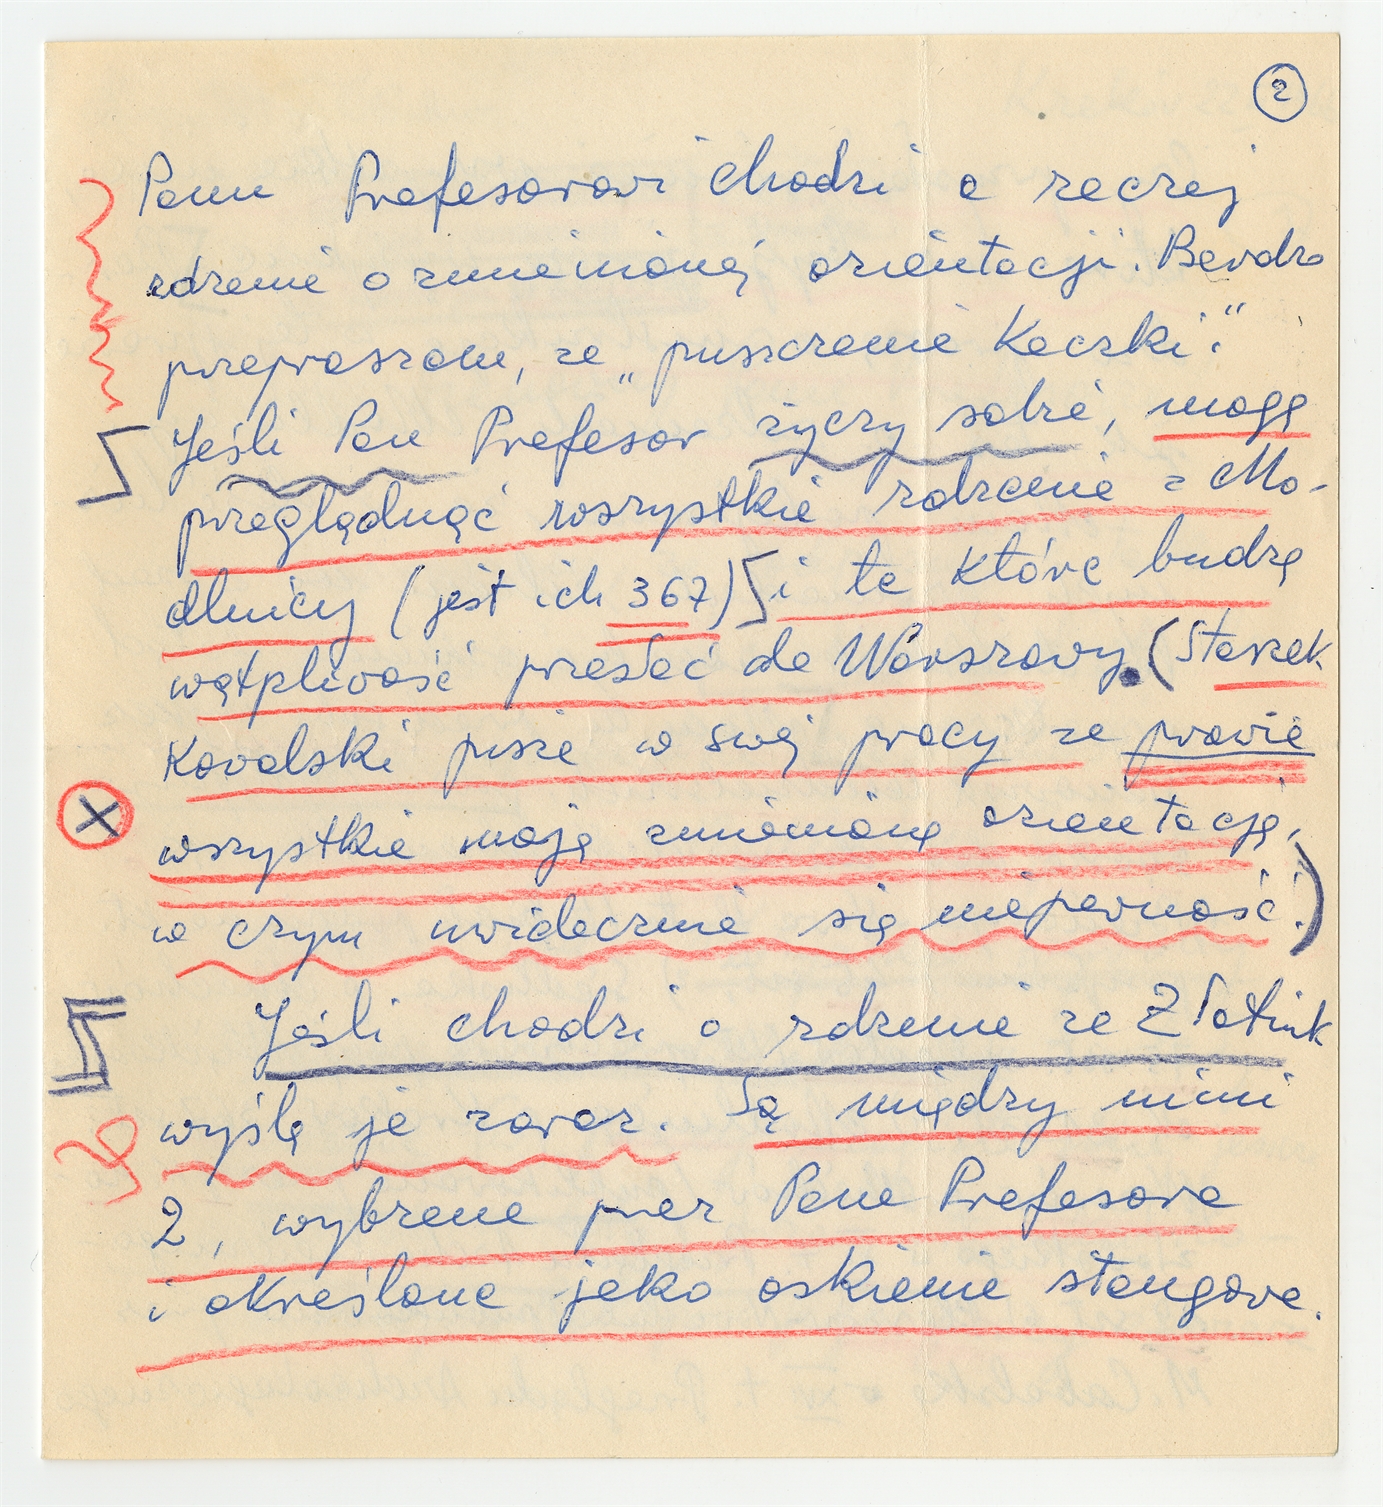 2
Panu Profesorowi chodzi o raczej
rdzenie o zmienionej orientacji. Bardzo
przepraszam, za „puszczenie Kaczki".
Jeśli Pan Profesor życzy sobie, mogę
przeglądnąć wszystkie rdzenie z Mo-
dlnicy (jest ich 367) i te które budzą
wątpliwość przesłać do Warszawy. (Staszek
Kowalski pisze w swej pracy że prawie
wszystkie mają zmienioną orientację,
w czym uwidacznia się niepewność.)
Jeśli chodzi o rdzenie ze Złotnik
wyślę je zaraz. Są między nimi
2, wybrane przez Pana Profesora
i określone jako oskienie stangowe.